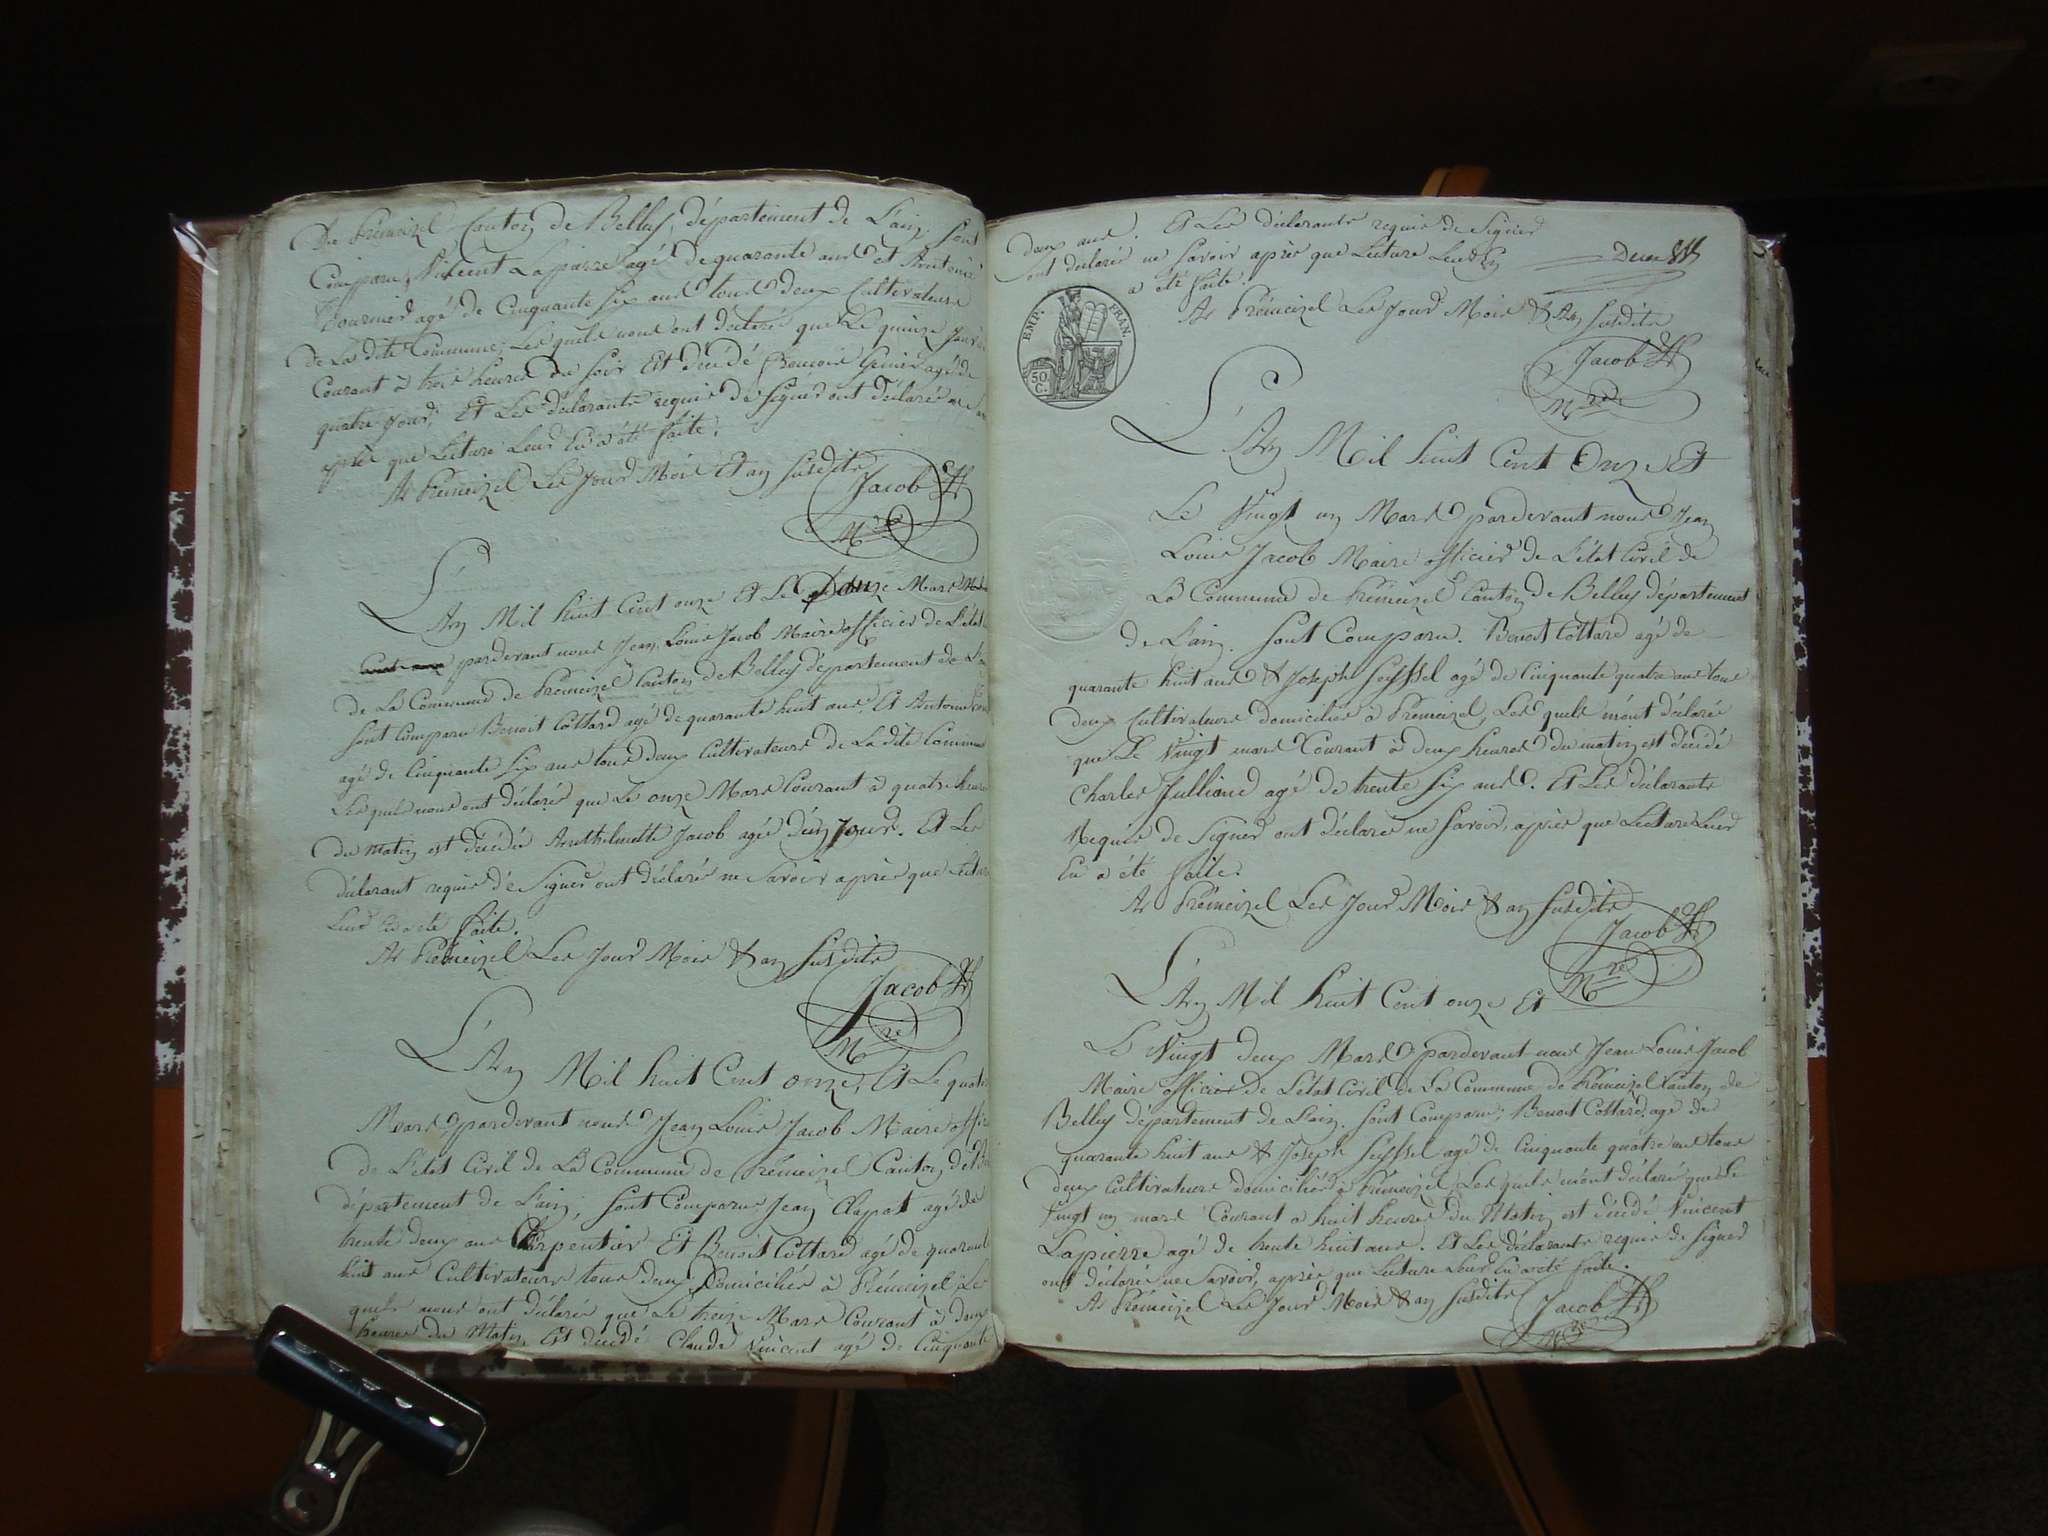 De Prémeizel Canton de Belley, département de L'ain. Sont
Comparu, Vincent Lapierre agé de quarante ans et Antoine
Fournier agé de Cinquante six ans tous deux Cultivateurs
de La dite Commune; Les quels nous ont declaré que Le quinze
Courant à trois heures du soir Est décédé agé de
quatre jours, Et Les déclarants requis de signer ont déclaré ne
après que Lecture Leur En a été faite.
At Prémeizel Les Jour Mois Et an susdits
Jacob
Mre
L'An Mil huit Cent onze Et Le Mars
pardevant nous Jean Louis Jacob Maire officier de L'état
de La Commune de Prémeizel Canton de Belley département de
sont Comparu Benoit Cottard agé de quarante huit ans Et Antoine
agé de Cinquante six ans tous deux Cultivateurs de La dite Commune
Les quels nous ont déclaré que Le onze Mars Courant à quatre heures
du matin est décédée Anthelmette Jacob agée d'un Jour. Et Les
déclarant requis de signer ont déclaré ne savoir après que Lecture
Leur En a été faite.
At Prémeizel Les Jour Mois & an susdits
Jacob
Mre
L'An Mil huit Cent onze, Et Le
Mars, pardevant nous Jean Louis Jacob Maire
de L'état Civil de La Commune de Prémeizel Canton de
département de L'ain, sont Comparus Jean Clapot agé de
trente deux ans Charpentier Et Benoit Cottard agé de quarante
huit ans Cultivateurs tous deux Domiciliés à Prémeizel Les
quels nous ont déclaré que Le treize Mars Courant à deux
heures du Matin Est décédé Claude Vincent agé de Cinquante
deux ans. Et Les déclarants requis de signer
ont déclaré ne savoir après que Lecture Leur En
a été faite.
At Prémeizel Les Jour Mois & An susdits
EMP. FRAN.
50
C.
Jacob
Mre
L'An Mil huit Cent Onze Et
Le Vingt un Mars pardevant nous Jean
Louis Jacob Maire officier de L'état Civil de
La Commune de Prémeizel Canton de Belley département
de L'ain. sont Comparu. Benoit Cottard agé de
quarante huit ans & Joseph Seyssel agé de Cinquante quatre ans tous
deux Cultivateurs domiciliés à Prémeizel, Les quels m'ont déclaré
que Le Vingt mars Courant à deux heures du matin est décédé
Charles Jullian agé de trente six ans. Et Les déclarants
Requis de Signer ont déclaré ne savoir, après que Lecture Leur
En a été faite.
At Prémeizel Les Jour Mois & an susdits
Jacob
Mre
L'An Mil huit Cent onze Et
Le Vingt deux Mars pardevant nous Jean Louis Jacob
Maire officier de L'état Civil de La Commune de Prémeizel Canton de
Belley département de L'ain. sont Comparu; Benoit Cottard, agé de
quarante huit ans & Joseph Seyssel agé de Cinquante quatre ans tous
deux Cultivateurs domiciliés à Prémeizel, Les quels m'ont déclaré que Le
Vingt un mars Courant a huit heures du Matin est décédé Vincent
Lapierre agé de trente huit ans. Et Les déclarants requis de signer
ont déclaré ne savoir, après que Lecture Leur En a été faite.
At Prémeizel Les Jour Mois & an susdits
Jacob
Mre